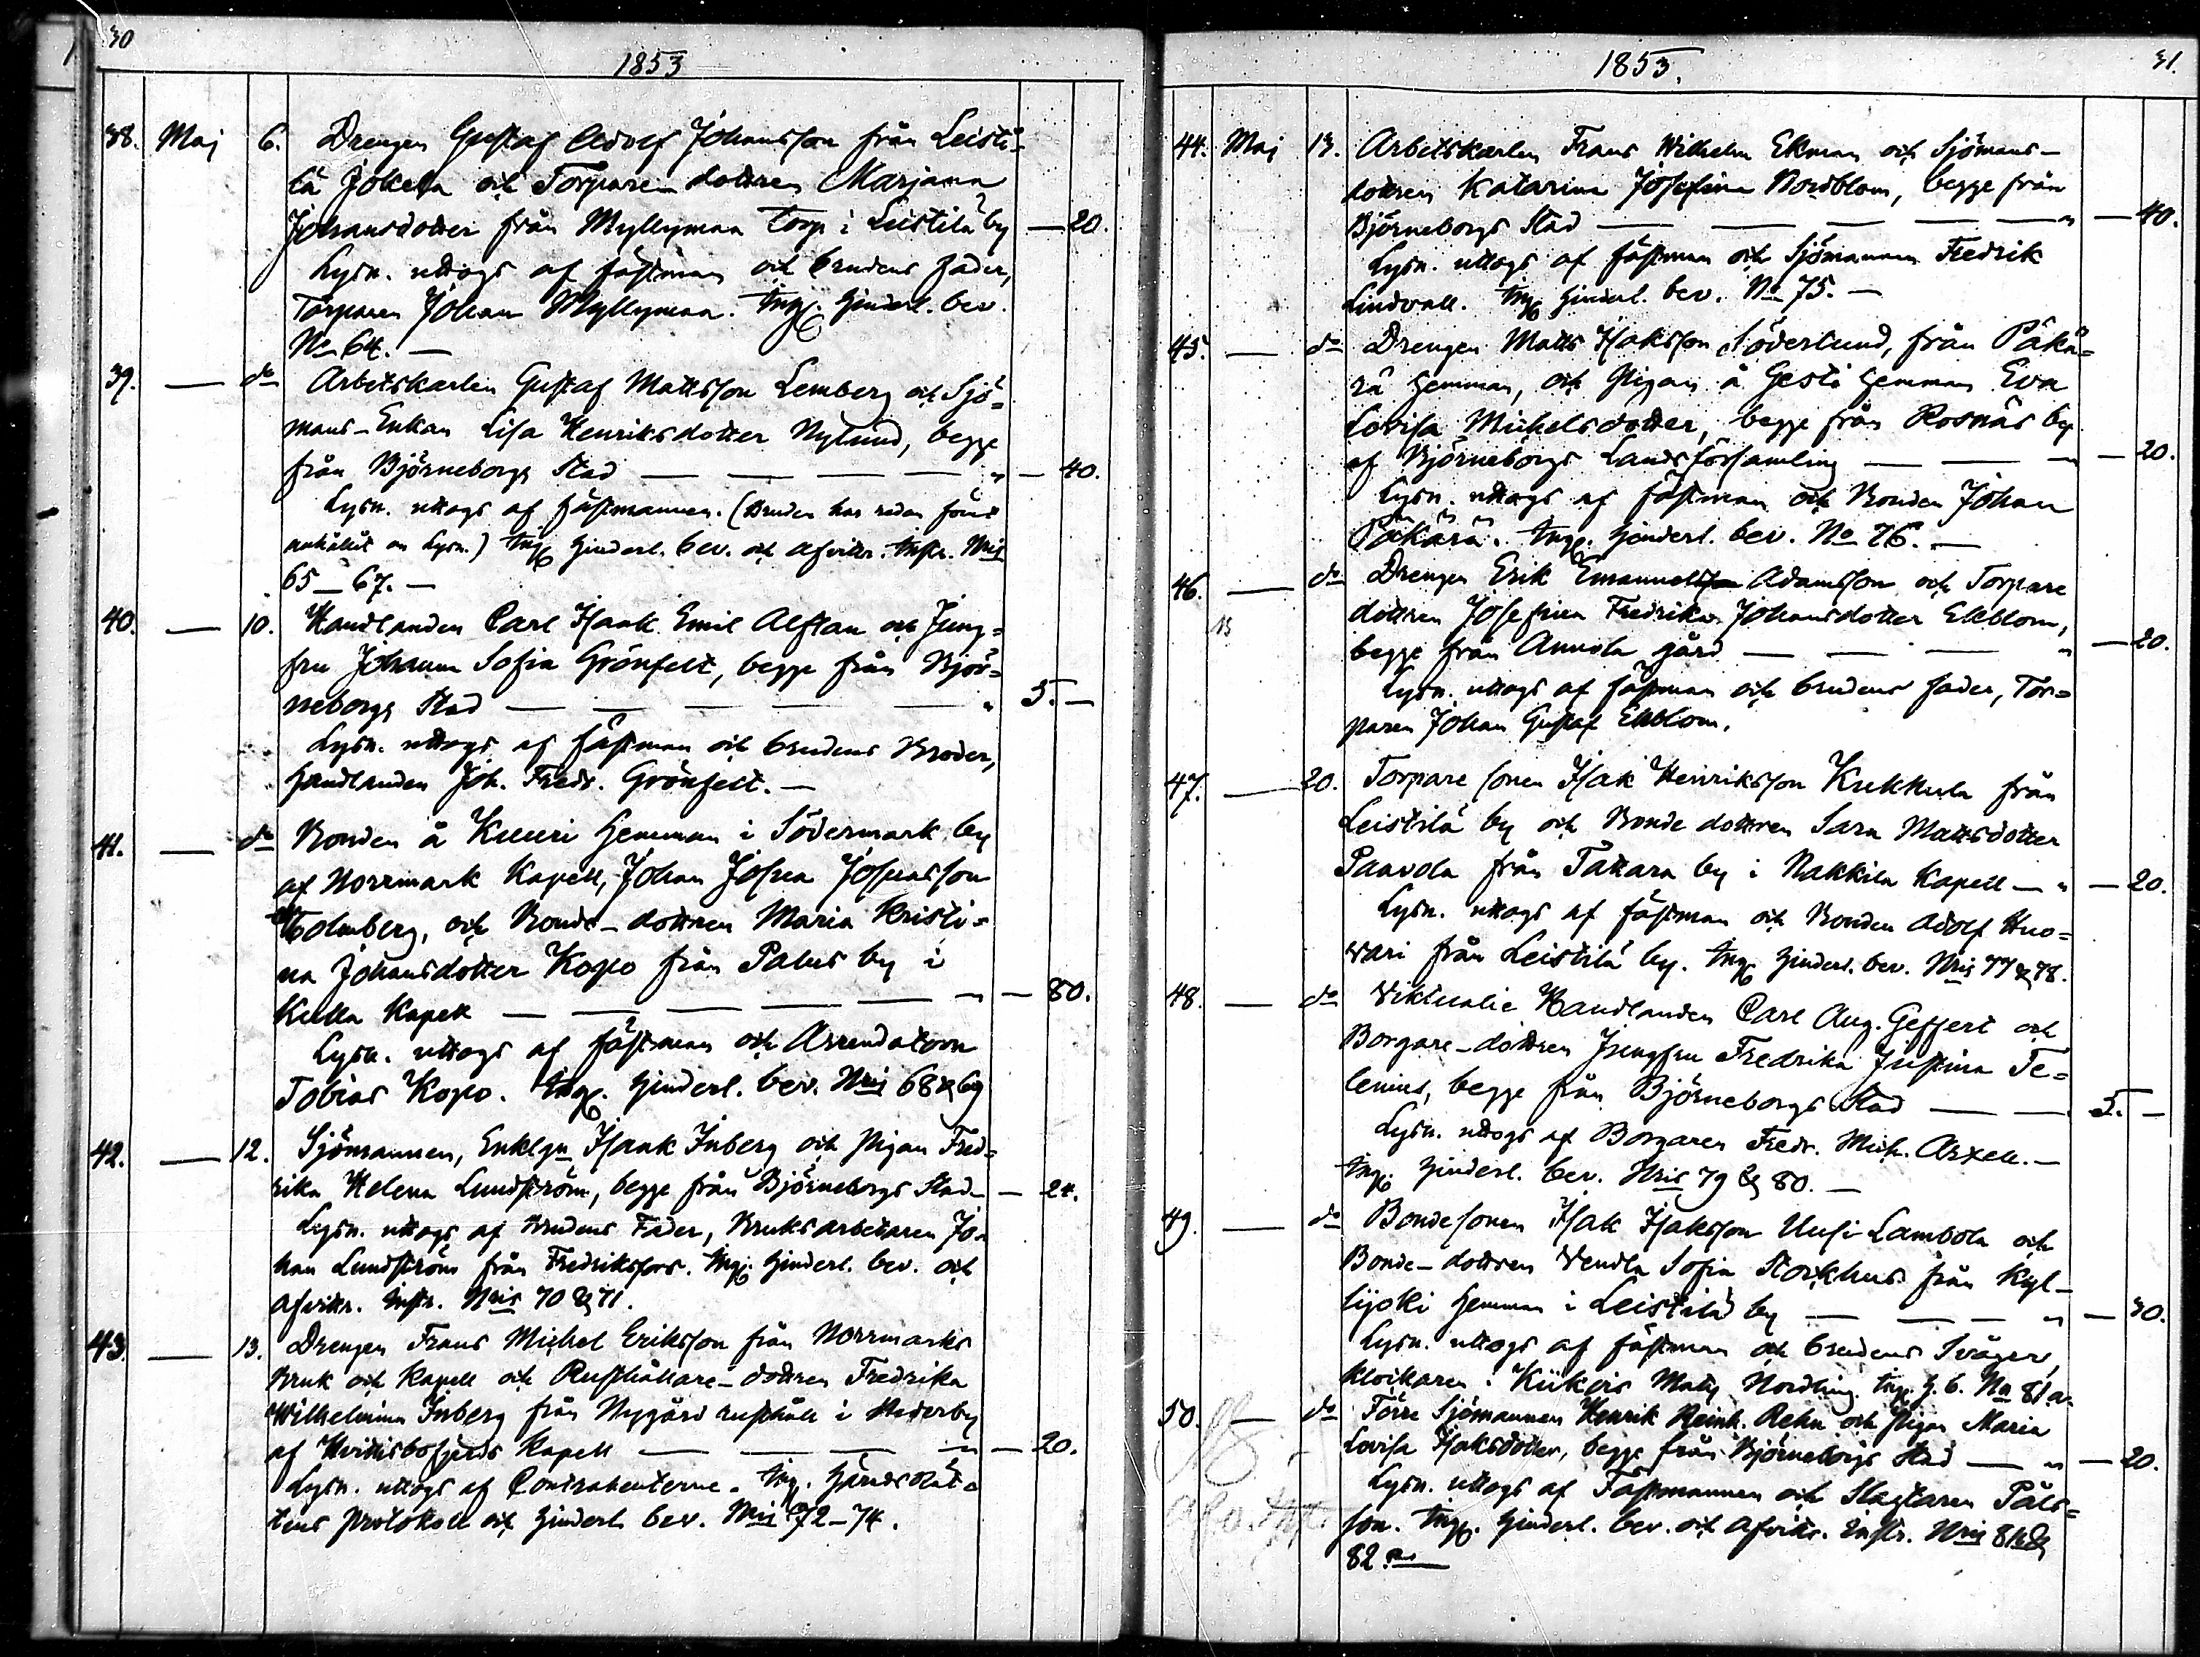 30
1853
38. Maj 6. Drengen Gustaf Adolf Johansson från Leisti-
lä Jokela och Torpare-dottren Marjana
Johansdotter från Myllymaa torp i Leistilä by — 20.
Lysn. uttogs af fästman och brudens fader,
Torparen Johan Myllymaa. Ingg. hinderl. bev.
No 64. —
39. — do Arbetskarlen Gustaf Mattsson Lemberg och Sjö-
mans-Enkan Lisa Henriksdotter Nylund, begge
från Björneborgs Stad — — — " — 40.
Lysn. uttogs af fästmannen. (Bruden har redan förut
anhållit om Lysn.) Ingg hinderl. bev. och afvittr. instr. Nris
65–67. —
40. — 10. Handlanden Carl Isaak Emil Alftan och Jung-
fru Johanna Sofia Grönfelt, begge från Björ-
neborgs Stad — — — — " 5. —
Lysn. uttogs af fästman och brudens Broder,
handlanden Joh. Fredr. Grönfelt. —
41. — do Bonden å Kuuri Hemman i Södermark by
af Norrmark Kapell, Johan Josua Josuasson
Holmberg, och Bonde-dottren Maria Kristi-
na Johansdotter Kopo från Palus by i
Kulla Kapell — — — — — " — 80.
Lysn. uttogs af fästman och Arrendatorn
Tobias Kopo. Ingg. hinderl. bev. Nris 68 & 69
42. — 12. Sjömannen, Enklgn Isaak Inberg och pigan Fred-
rika Helena Lundström, begge från Björneborgs Stad — — 24.
Lysn. uttogs af Brudens Fader, Bruksarbetaren Jo-
han Lundström från Fredriksfors. Ingg. hinderl. bev. och
afvittr. instr. Nris 70 & 71.
43. — 13. Drengen Frans Michel Eriksson från Norrmarks
Bruk och Kapell och Rusthållare-dottren Fredrika
Wilhelmina Inberg från Nygård rusthåll i Stederby
af Hvittisbofjerds Kapell — — — " — 20.
Lysn. uttogs af Contrahenterne. Ingg. Häradsrät-
tens protokoll och hinderl. bev. Nris 72–74.
1853.
31.
44. Maj 13. Arbetskarlen Frans Wilhelm Ekman och Sjömans-
dottren Katarina Josefina Nordblom, begge från
Björneborgs Stad — — — — " — 40.
Lysn. uttogs af fästman och Sjömannen Fredrik
Lindvall. Ingg hinderl. bev. No 75. —
45. — do Drengen Matts Isaksson Söderlund, från Päkä-
rä hemman, och pigan å Gesti hemman Eva
Lovisa Michelsdotter, begge från Rosnäs by
af Björneborgs Landsförsamling — — " — 20.
Lysn. uttogs af fästman och Bonden Johan
Päkärä. Ingg. hinderl. bev. No 76. —
46. — do Drengen Erik Emanuelsson Adamsson och Torpare
dottren Josefina Fredrika Johansdotter Ekblom,
begge från Anvola gård — — — " — 20.
Lysn. uttogs af fästman och brudens fader, Tor-
paren Johan Gustaf Ekblom.
47. — 20. Torpare sonen Isak Henriksson Kukkula från
Leistilä by och Bonde dottren Sara Mattsdotter
Paavola från Tattara by i Nakkila Kapell — " — 20.
Lysn. uttogs af fästman och Bonden Adolf Huo-
vari från Leistilä by. Ingg. hinderl. bev. Nris 77 & 78.
48. — do Viktualie Handlanden Carl Aug. Geffert och
Borgare-dottren Jungfru Fredrika Justina Te-
lenius, begge från Björneborgs Stad — — 5. —
Lysn. uttogs af Borgaren Fredr. Mich. Arxell. —
Ingg. hinderl. bev. Nris 79 & 80. —
49. — do Bondesonen Isak Isaksson Uusi Lambola och
Bonde-dottren Vendla Sofia Storkhus från Kyl-
lijoki hemman i Leistilä by — — — " — 30.
Lysn. uttogs af fästman och brudens Svåger,
klockaren i Kiikois Matts Nordling. Ingg. h. b. No 81 a.
50. — do Förre Sjömannen Henrik Reinh. Rehn och pigan Maria
Lovisa Isaksdotter, begge från Björneborgs Stad — " — 20.
Lysn. uttogs af Fästmannen och Slagtaren Påls-
son. Ingg. hinderl. bev. och afvittr. instr. Nris 81 b &
82. —